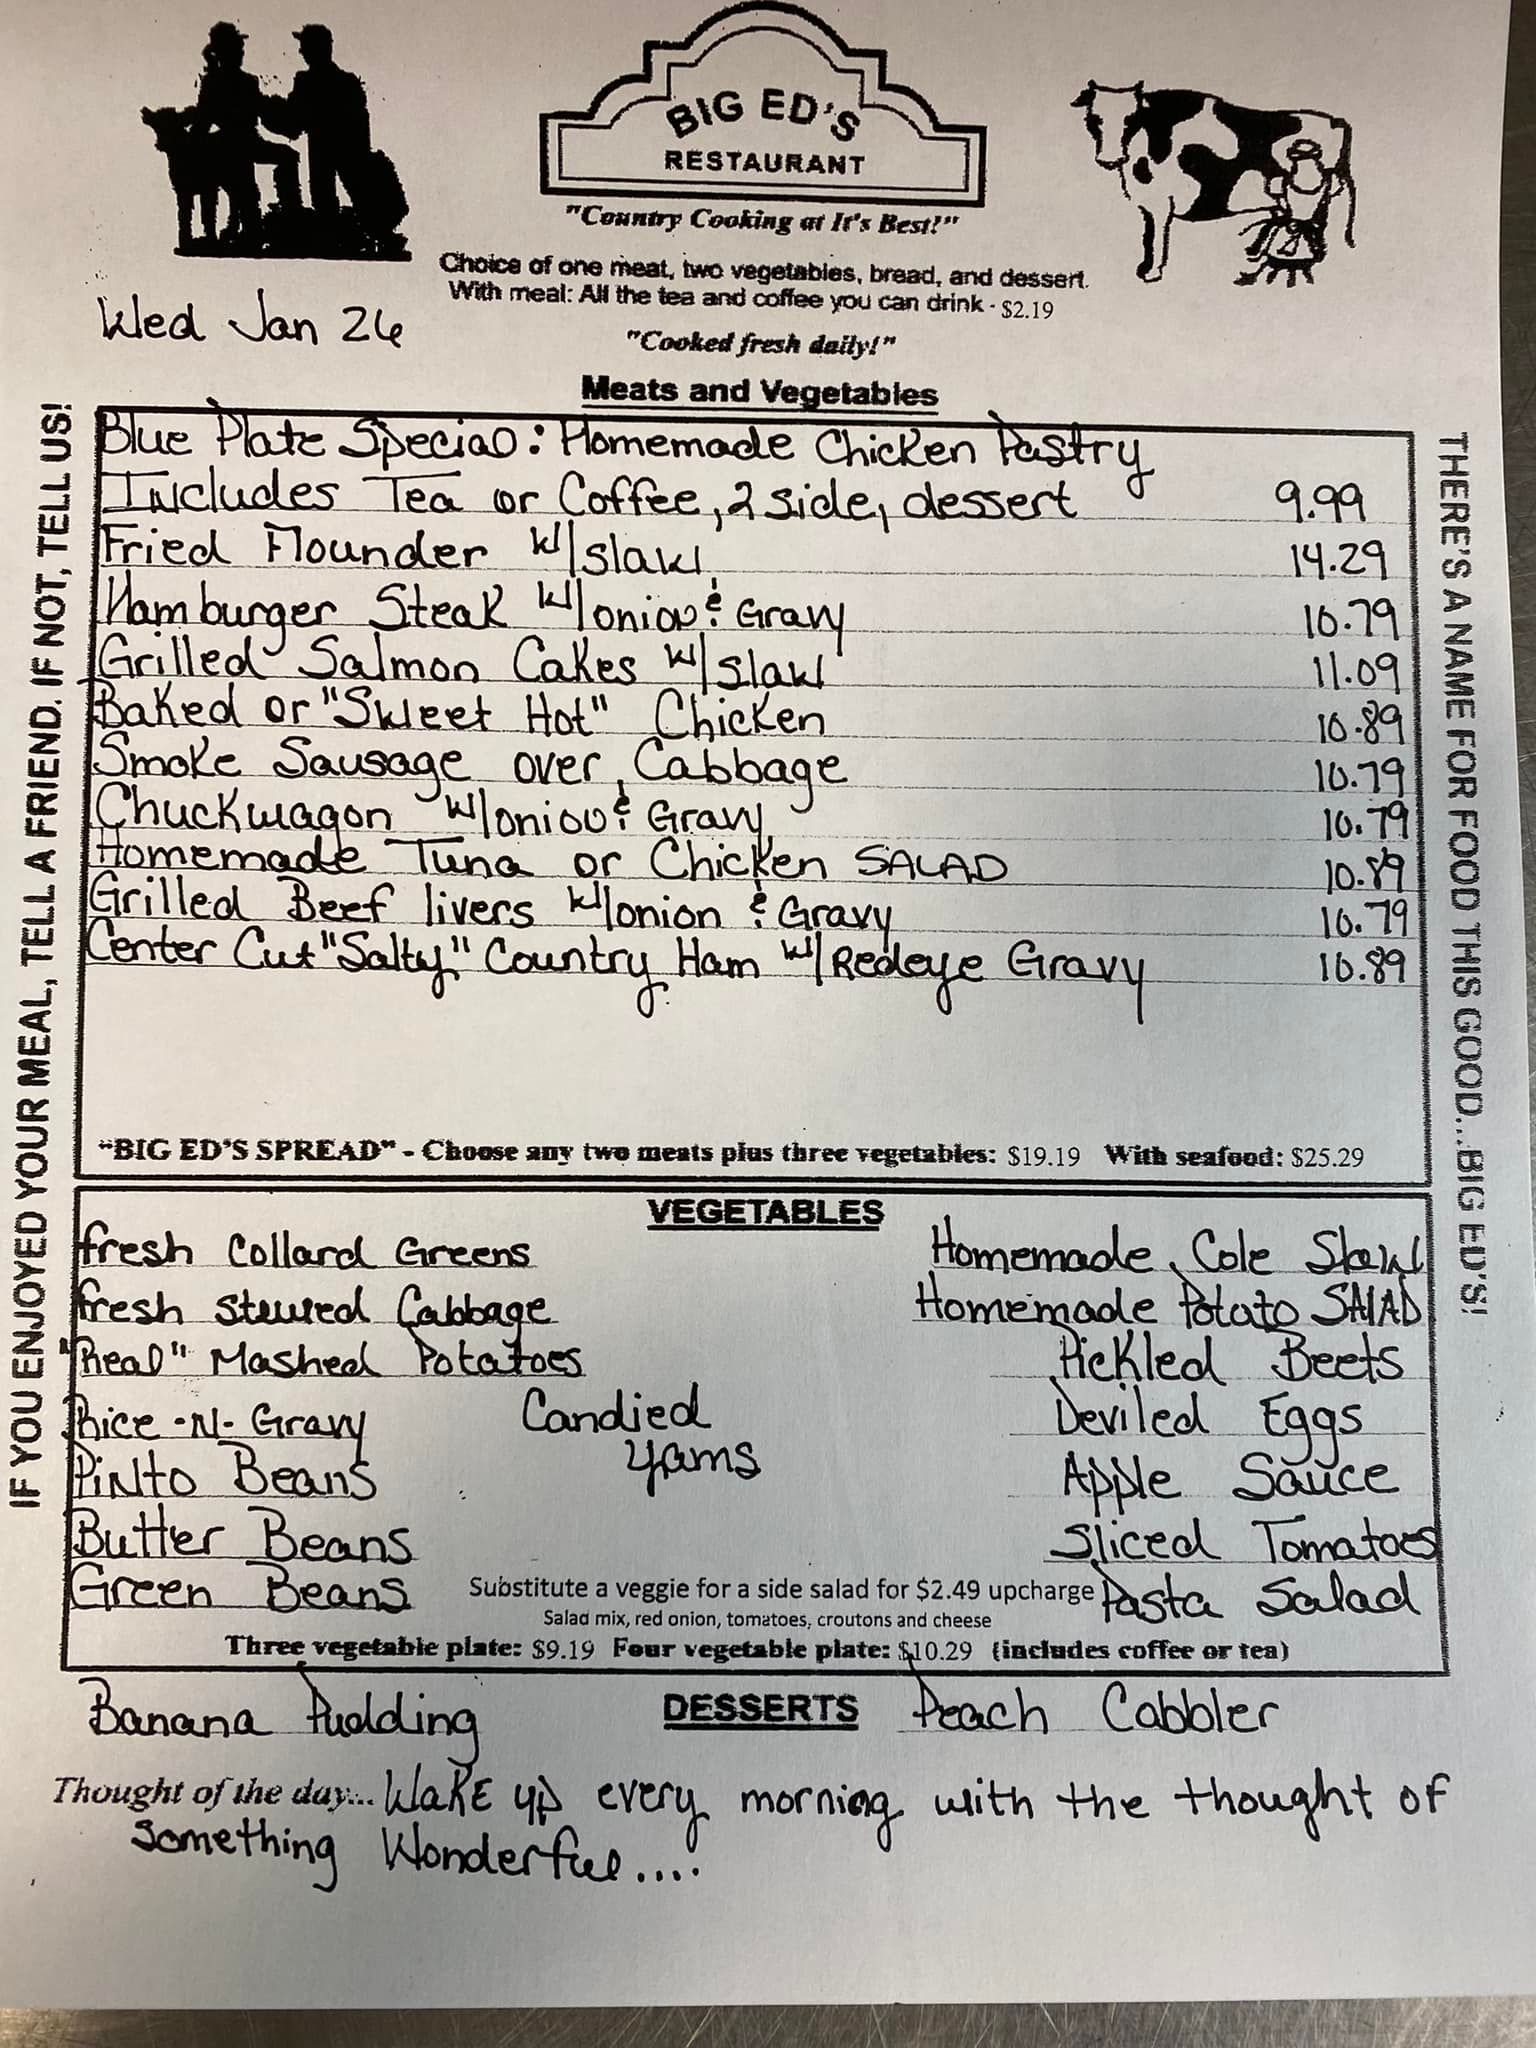 BIG ED'S
RESTAURANT
"Country Cooking at It's Best!"
Choice of one meat, two vegetables, bread, and dessert.
With meal: All the tea and coffee you can drink - $2.19
Wed Jan 26
"Cooked fresh daily!"
Meats and Vegetables
IF YOU ENJOYED YOUR MEAL, TELL A FRIEND. IF NOT, TELL US!
Blue Plate Special: Homemade Chicken Pastry
Includes Tea or Coffee, 2 side, dessert 9.99
Fried Flounder w/slaw 14.29
Hamburger Steak w/onion & Gravy 10.79
Grilled Salmon Cakes w/slaw 11.09
Baked or "Sweet Hot" Chicken 10.89
Smoke Sausage over Cabbage 10.79
Chuckwagon w/onion & Gravy 10.79
Homemade Tuna or Chicken SALAD 10.89
Grilled Beef livers w/onion & Gravy 10.79
Center Cut "Salty" Country Ham w/Redeye Gravy 10.89
"BIG ED'S SPREAD" - Choose any two meats plus three vegetables: $19.19 With seafood: $25.29
THERE'S A NAME FOR FOOD THIS GOOD...BIG ED'S!
VEGETABLES
fresh Collard Greens Homemade Cole Slaw
fresh Stewed Cabbage Homemade Potato SALAD
"Real" Mashed Potatoes Pickled Beets
Rice -N- Gravy Candied Yams Deviled Eggs
Pinto Beans Apple Sauce
Butter Beans Sliced Tomatoes
Green Beans Substitute a veggie for a side salad for $2.49 upcharge Pasta Salad
Salad mix, red onion, tomatoes, croutons and cheese
Three vegetable plate: $9.19 Four vegetable plate: $10.29 (includes coffee or tea)
Banana Pudding DESSERTS Peach Cobbler
Thought of the day... Wake up every morning with the thought of
something Wonderful....